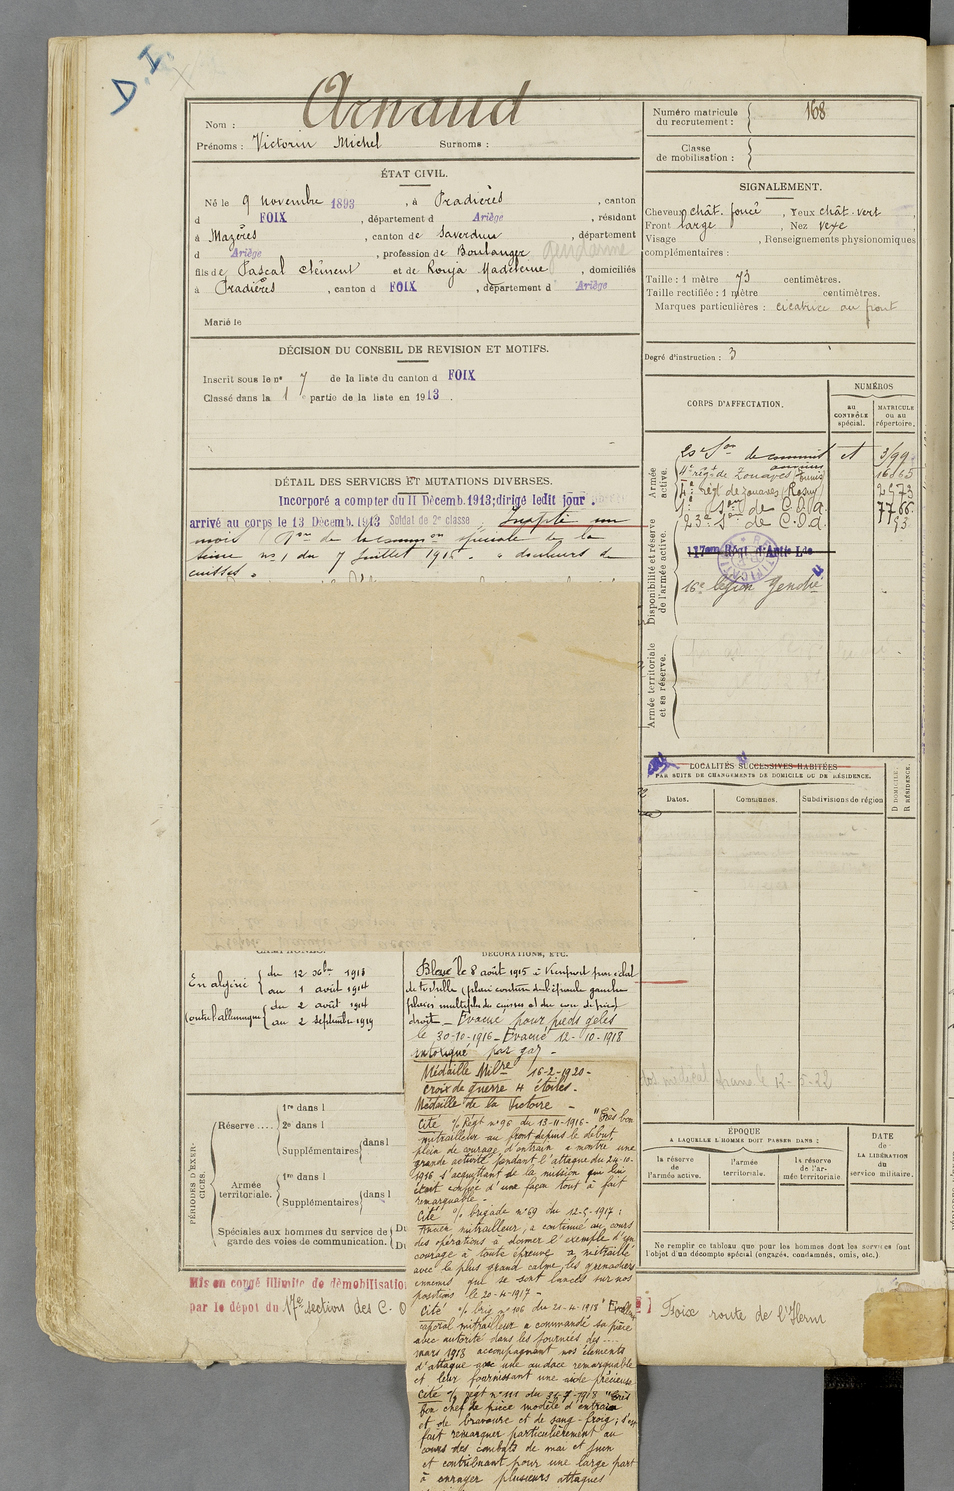 D.I.
Nom : Arnaud
Prénoms : Victorin Michel Surnoms :
ÉTAT CIVIL.
Né le 9 novembre 1893, à Pradières, canton
d FOIX, département d Ariège, résidant
à Mazères, canton de Saverdun, département
d Ariège, profession de Boulanger gendarme
fils de Pascal Clément et de Rouja Madeleine, domiciliés
à Pradières, canton d FOIX, département d Ariège
Marié le
DÉCISION DU CONSEIL DE REVISION ET MOTIFS.
Inscrit sous le nº 7 de la liste du canton d FOIX
Classé dans la 1 partie de la liste en 1913.
DÉTAIL DES SERVICES ET MUTATIONS DIVERSES.
Incorporé a compter du 11 Décemb. 1913; dirigé ledit jour.
arrivé au corps le 13 Décemb. 1913 Soldat de 2e classe. Inapte un
mois spéciale de la
Seine nº 1 du 7 Juillet 1916 " douleurs de
cuisses "
DÉCORATIONS, ETC.
En algérie { du 12 Xbre 1913
au 1 août 1914
Contre l'allemagne { du 2 août 1914
au 2 septembre 1919
Blessé le 8 août 1915 à Nieuport par éclat
de torpille (plaie contuse de l'épaule gauche
plaies multiples du cuisses et du cou de pied
droit - Évacué pour pieds gelés
le 30-10-1916 - Évacué 12-10-1918
intoxiqué par gaz -
Médaille Milre 16-2-1920 -
Croix de guerre 4 étoiles.
Médaille de la Victoire -
Cité o/ Régt nº 96 du 13-11-1916 - "Très bon
mitrailleur au front depuis le début,
plein de courage, d'entrain a montré une
grande activité pendant l'attaque du 24-10-
1916 s'acquittant de la mission qui lui
était confiée d'une façon tout à fait
remarquable -
Cité o/ brigade nº 69 du 12-5-1917 :
Ancien mitrailleur, a continué au cours
des opérations à donner l'exemple d'un
courage à toute épreuve a mitraillé
avec le plus grand calme les grenadiers
ennemis qui se sont lancés sur nos
positions le 20-4-1917 -
Cité o/ brig nº 106 du 20-4-1918 "Excellent
caporal mitrailleur a commandé sa pièce
avec autorité dans les journées des ....
mars 1918 accompagnant nos éléments
d'attaque avec une audace remarquable
et leur fournissant une aide précieuse
Cité o/ régt nº 111 du 31-7-1918 "Très
bon chef de pièce modèle d'entrain
et de bravoure et de sang-froig; s'est
fait remarquer particulièrement au
cours des combats de mai et juin
et contribuant pour une large part
à enrayer plusieurs attaques
PÉRIODES D'EXERCICES.
Réserve .... { 1re dans l
2e dans l
Supplémentaires { dans l
Armée territoriale. { 1re dans l
Supplémentaires { dans l
Spéciales aux hommes du service de garde des voies de communication. { Du
Du
Mis en congé illimité de démobilisation
par le dépot du 17e sections des C. O
Foix route de l'Herm
Numéro matricule du recrutement : { 168
Classe de mobilisation : {
SIGNALEMENT.
Cheveux chât. foncé, Yeux chât. vert
Front large, Nez vexe,
Visage , Renseignements physionomiques
complémentaires :
Taille : 1 mètre 73 centimètres.
Taille rectifiée : 1 mètre centimètres.
Marques particulières : cicatrice au front
Degré d'instruction : 3
CORPS D'AFFECTATION.
NUMÉROS
AU CONTRÔLE spécial.
MATRICULE ou au répertoire.
Armée active.
4e régt de Zouaves (Tunis) 16865
4e régt de zouaves (Rosny) 2573
son de C.O.A. 7766
23e Son de C.O.A. 53
Disponibilité et réserve de l'armée active.
117em Régt d'Artie Lde
16e légion Gendie
Armée territoriale et sa réserve.
LOCALITÉS SUCCESSIVES HABITÉES
PAR SUITE DE CHANGEMENTS DE DOMICILE OU DE RÉSIDENCE.
Dates.
Communes.
Subdivisions de région
D DOMICILE.
R RÉSIDENCE.
ÉPOQUE
A LAQUELLE L'HOMME DOIT PASSER DANS :
la réserve de l'armée active.
l'armée territoriale.
la réserve de l'armée territoriale
DATE de LA LIBÉRATION du service militaire.
Ne remplir ce tableau que pour les hommes dont les services font
l'objet d'un décompte spécial (engagés, condamnés, omis, etc.)